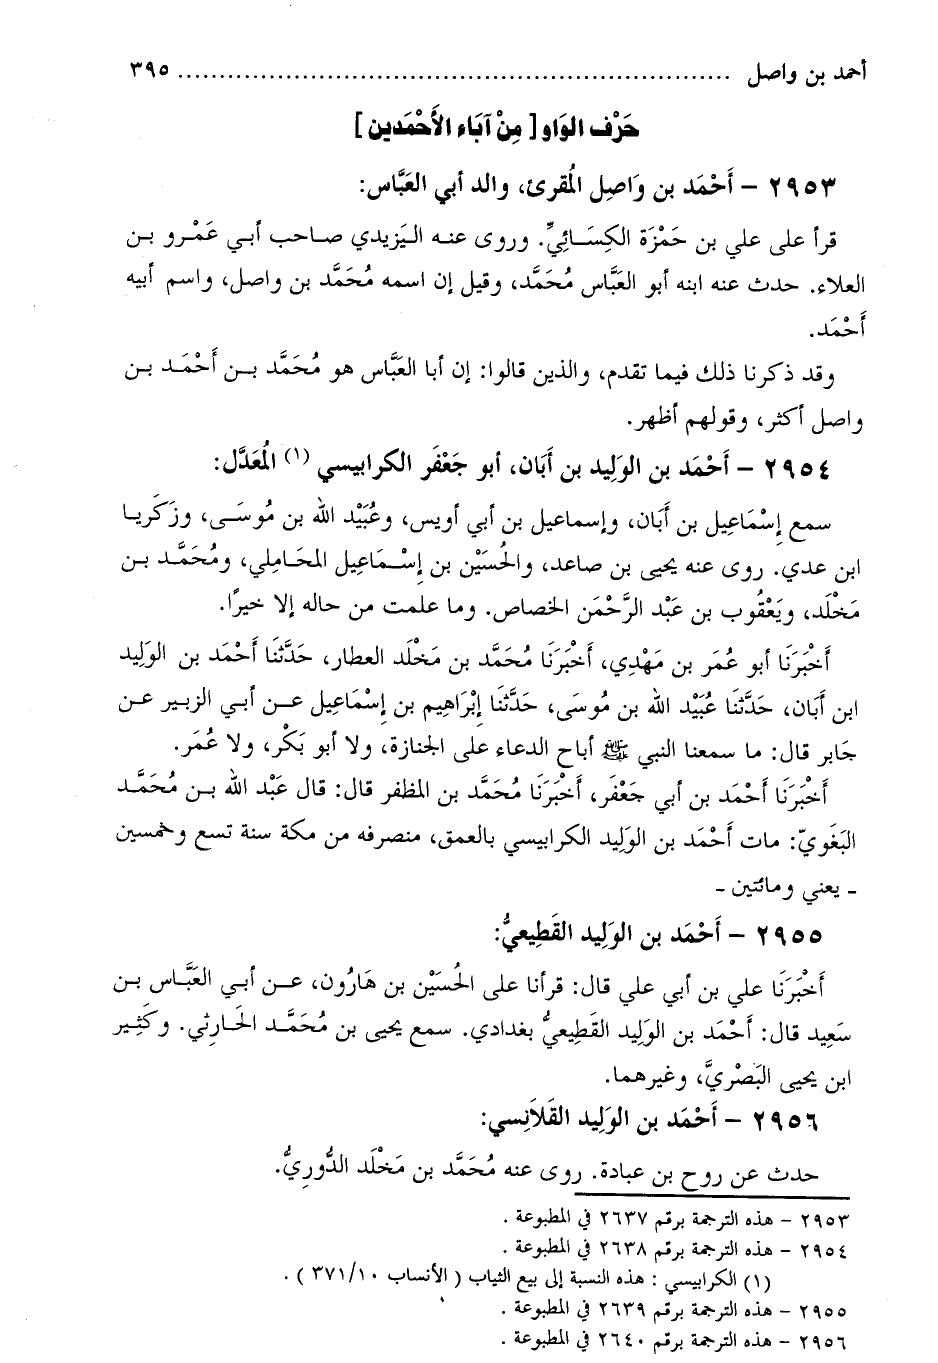 أحمد بن واصل ................................................................ ٣٩٥
حَرْف الوَاو [ مِنْ آبَاء الأَحْمَدين ]
٢٩٥٣ - أَحْمَد بن وَاصِل المُقرئ، والد أبي العَبَّاس:
قرأ على علي بن حَمْزَة الكِسَائِيِّ. وروى عنه اليَزيدي صاحب أبي عَمْرو بن
العلاء. حدث عنه ابنه أبو العَبَّاس مُحَمَّد، وقيل إن اسمه مُحَمَّد بن واصل، واسم أبيه
أَحْمَد.
وقد ذكرنا ذلك فيما تقدم، والذين قالوا: إن أبا العَبَّاس هو مُحَمَّد بن أَحْمَد بن
واصل أكثر، وقولهم أظهر.
٢٩٥٤ - أَحْمَد بن الوَلِيد بن أَبَان، أبو جَعْفَر الكرابيسي (١) المُعَدَّل:
سمع إِسْمَاعِيل بن أَبَان، وإسماعيل بن أبي أويس، وعُبَيْد الله بن مُوسَى، وزَكَريا
ابن عدي. روى عنه يحيى بن صاعد، والحُسَيْن بن إِسْمَاعِيل المحَاملي، ومُحَمَّد بن
مَخْلَد، ويَعْقُوب بن عَبْد الرَّحْمَن الخصاص. وما علمت من حاله إلا خيرًا.
أَخْبَرَنَا أبو عُمَر بن مَهْدِي، أَخْبَرَنَا مُحَمَّد بن مَخْلَد العطار، حَدَّثَنَا أَحْمَد بن الوَلِيد
ابن أَبَان، حَدَّثَنَا عُبَيْد الله بن مُوسَى، حَدَّثَنَا إِبْرَاهِيم بن إِسْمَاعِيل عن أبي الزبير عن
جَابر قال: ما سمعنا النبي ﷺ أباح الدعاء على الجنازة، ولا أبو بَكْر، ولا عُمَر.
أَخْبَرَنَا أَحْمَد بن أبي جَعْفَر، أَخْبَرَنَا مُحَمَّد بن المظفر قال: قال عَبْد الله بن مُحَمَّد
البَغَويّ: مات أَحْمَد بن الوَلِيد الكرابيسي بالعمق، منصرفه من مكة سنة تسع وخمسين
ـ يعني ومائتين ـ
٢٩٥٥ - أَحْمَد بن الوَلِيد القَطِيعيُّ:
أَخْبَرَنَا علي بن أبي علي قال: قرأنا على الحُسَيْن بن هَارُون، عن أبي العَبَّاس بن
سَعِيد قال: أَحْمَد بن الوَلِيد القَطِيعيُّ بغدادي. سمع يحيى بن مُحَمَّد الحَارثي. وكَثِير
ابن يحيى البَصْريَّ، وغيرهما.
٢٩٥٦ - أَحْمَد بن الوَلِيد القَلَانِسي:
حدث عن روح بن عبادة. روى عنه مُحَمَّد بن مَخْلَد الدُّوريُّ.
٢٩٥٣ - هذه الترجمة برقم ٢٦٣٧ في المطبوعة .
٢٩٥٤ - هذه الترجمة برقم ٢٦٣٨ في المطبوعة .
(١) الكرابيسي : هذه النسبة إلى بيع الثياب ( الأنساب ٣٧١/١٠ ) .
٢٩٥٥ - هذه الترجمة برقم ٢٦٣٩ في المطبوعة .
٢٩٥٦ - هذه الترجمة برقم ٢٦٤٠ في المطبوعة .